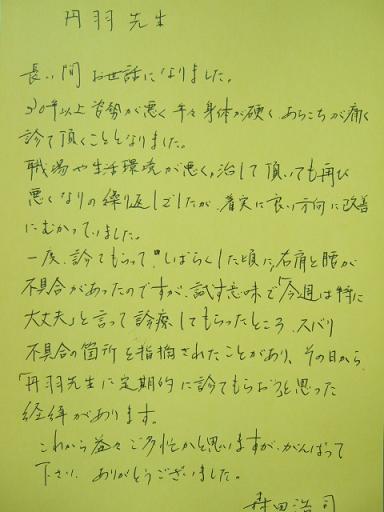 丹羽先生
長い間お世話になりました。
30年以上姿勢が悪く年々身体が硬く、あちこちが痛く
診て頂くこととなりました。
職場や生活環境が悪く、治して頂いても再び
悪くなりの繰り返しでしたが、着実に良い方向に改善
にむかっていました。
一度、診てもらって、しばらくした頃に、右肩と腰が
不具合があったのですが、試す意味で「今週は特に
大丈夫」と言って診療してもらったところ、ズバリ
不具合の箇所を指摘されたことがあり、その日から
「丹羽先生に定期的に診てもらおうと思った
経緯があります。
これから益々ご多忙かと思いますが、がんばって
下さい。ありがとうございました。
森田浩司